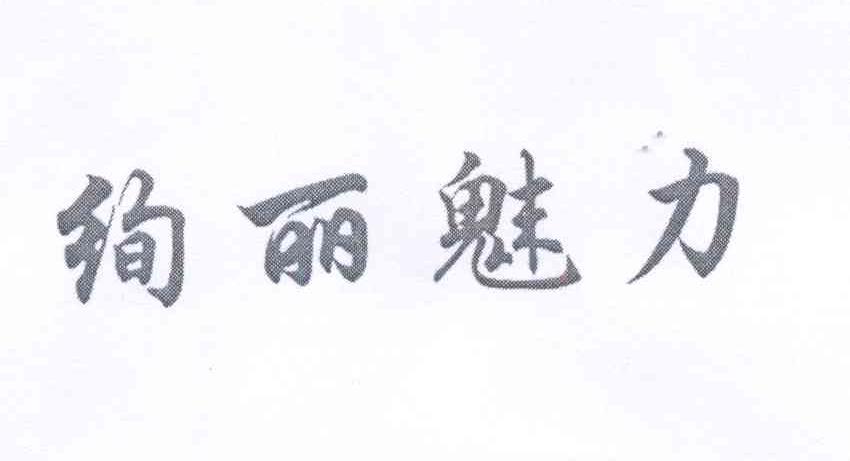 绚丽魅力